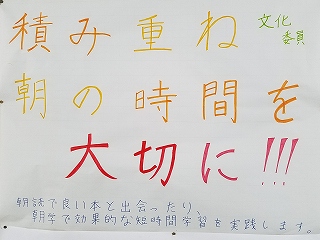 積み重ね
文化
委員
朝の時間を
大切に!!!
朝読で良い本と出会ったり、
朝学で効果的な短時間学習を実践します。